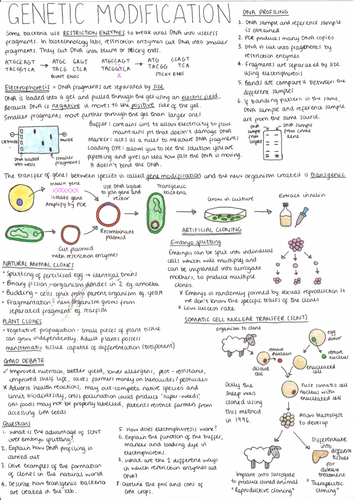 GENETIC MODIFICATION
Some bacteria use RESTRICTION ENZYMES to break viral DNA into useless
fragments. In biotechnology labs, restriction enzymes cut DNA into smaller
fragments. They cut DNA into blunt or sticky ends.
BLUNT ENDS
STICKY ENDS
Electrophoresis - DNA fragments are separated by size
DNA is loaded into a gel and pulled through the gel using an electric field.
Because DNA is negative it moves to the positive side of the gel.
Smaller fragments move further through the gel than larger ones.
Buffer: contains ions to allow electricity to flow,
maintains pH that doesn't damage DNA
Marker: acts as a ruler to measure DNA fragments
Loading DYE: allows you to see the solution you are
pipetting and gives an idea how far the DNA is moving.
It doesn't bind the DNA.
DNA loaded into wells
smaller fragments
DNA PROFILING
1. DNA sample and reference sample
is obtained
2. PCR produces many DNA copies
3. DNA is cut into fragments by
restriction enzymes
4. Fragments are separated by size
using electrophoresis
5. Bands are compared between the
different samples
6. If banding pattern is the same,
DNA sample and reference sample
are from the same source.
The transfer of genes between species is called gene modification and the new organism created is transgenic.
Insulin gene
XXXXXXX
isolate gene
Amplify by PCR
Use DNA ligase
to join gene and
vector
Transgenic
bacteria
Recombinant
plasmid
Cut plasmid
with restriction enzymes
Grow in culture
Extract insulin
NATURAL ANIMAL CLONES
- Splitting of fertilised egg → identical twins
- Binary fission - organism divides in 2 eg. amoeba
- Budding - cells split from parent organism eg. yeast
- Fragmentation - new organism grows from
separated fragment eg. starfish
PLANT CLONES
- Vegetative propagation - small pieces of plant tissue
can grow independently. Adult plants possess
meristematic tissue capable of differentiation (totipotent)
ARTIFICIAL CLONING
Embryo splitting
Embryos can be split into individual
cells which will multiply and
can be implanted into surrogate
mothers, to produce multiple
clones.
* Embryo is randomly formed by sexual reproduction so
we don't know the specific traits of the clones
* Low success rate.
GMO DEBATE
✓ Improved nutrition, better yield, lower allergens, pest-resistance,
improved shelf life, saves farmers money on herbicides/pesticides
✗ Adverse health reactions, may out-compete native species and
limit biodiversity, cross pollination could produce 'super-weeds',
GM foods may not be properly labelled, patents restrict farmers from
accessing GM seeds
SOMATIC CELL NUCLEAR TRANSFER (SCNT)
organism to clone
egg donor
remove nucleus
remove nucleus
somatic cell
enucleated
Dolly the
sheep was
cloned using
this method
in 1996
Fuse somatic cell
nucleus with
enucleated cell
Allow blastocyst
to develop
Differentiate
into different
tissues for
disease treatment
"Therapeutic cloning"
Implant into surrogate
to produce cloned animal
"Reproductive cloning"
Questions
1. What is the advantage of SCNT
over embryo splitting?
2. Explain how DNA profiling is
carried out
3. Give examples of the formation
of clones in the natural world.
4. Describe how transgenic bacteria
are created in the lab.
5. How does electrophoresis work?
6. Explain the function of the buffer,
marker and loading dye in
electrophoresis.
7. What are the 2 different ways
in which restriction enzymes cut
DNA?
8. Outline the pros and cons of
GM crops.